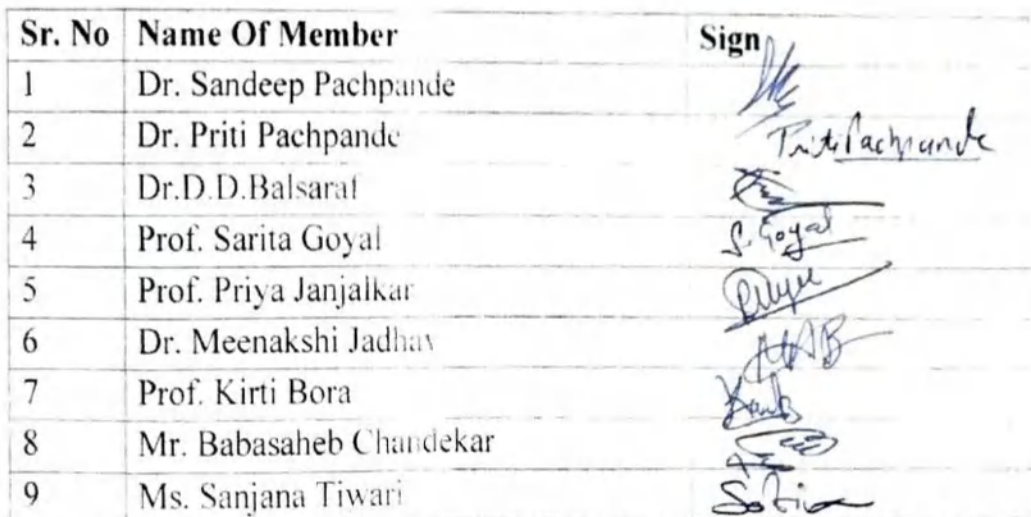 Sr. No Name Of Member Sign
1 Dr. Sandeep Pachpande
2 Dr. Priti Pachpande Priti Pachpande
3 Dr.D.D.Balsaraf
4 Prof. Sarita Goyal S. Goyal
5 Prof. Priya Janjalkar
6 Dr. Meenakshi Jadhav
7 Prof. Kirti Bora
8 Mr. Babasaheb Chandekar
9 Ms. Sanjana Tiwari